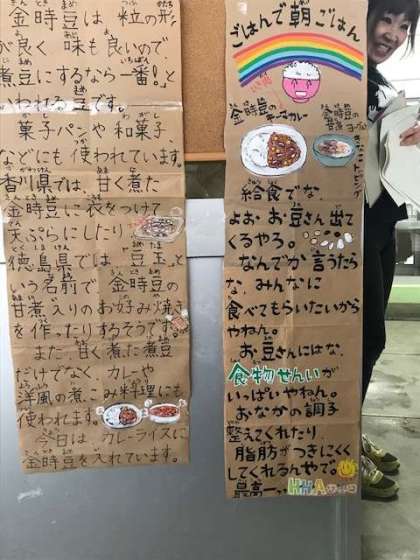 金時豆は 粒の形
が良く 味も良いので
煮豆にするなら一番!と
いわれる豆です。
菓子パンや和菓子
などにも使われています。
香川県では、甘く煮た
金時豆に衣をつけて
天ぷらにしたり
徳島県では「豆玉」と
いう名前で 金時豆の
甘煮入りのお好み焼き
を作ったりするそうです。
また、甘く煮た煮豆
だけでなく、カレーや
洋風の煮こみ料理にも
使われます。
今日は カレーライスに
金時豆を入れています。
ごはんで朝ごはん
金時豆の
チーズカレー
金時豆の
給食でな
よぉ お豆さん出て
くるやろ。
なんでか言うたら
な、みんなに
食べてもらいたいから
やねん。
お豆さんにはな、
食物せんいが
いっぱいやねん。
おなかの調子
整えてくれたり
脂肪がつきにくく
してくれるんやで。
最高ー